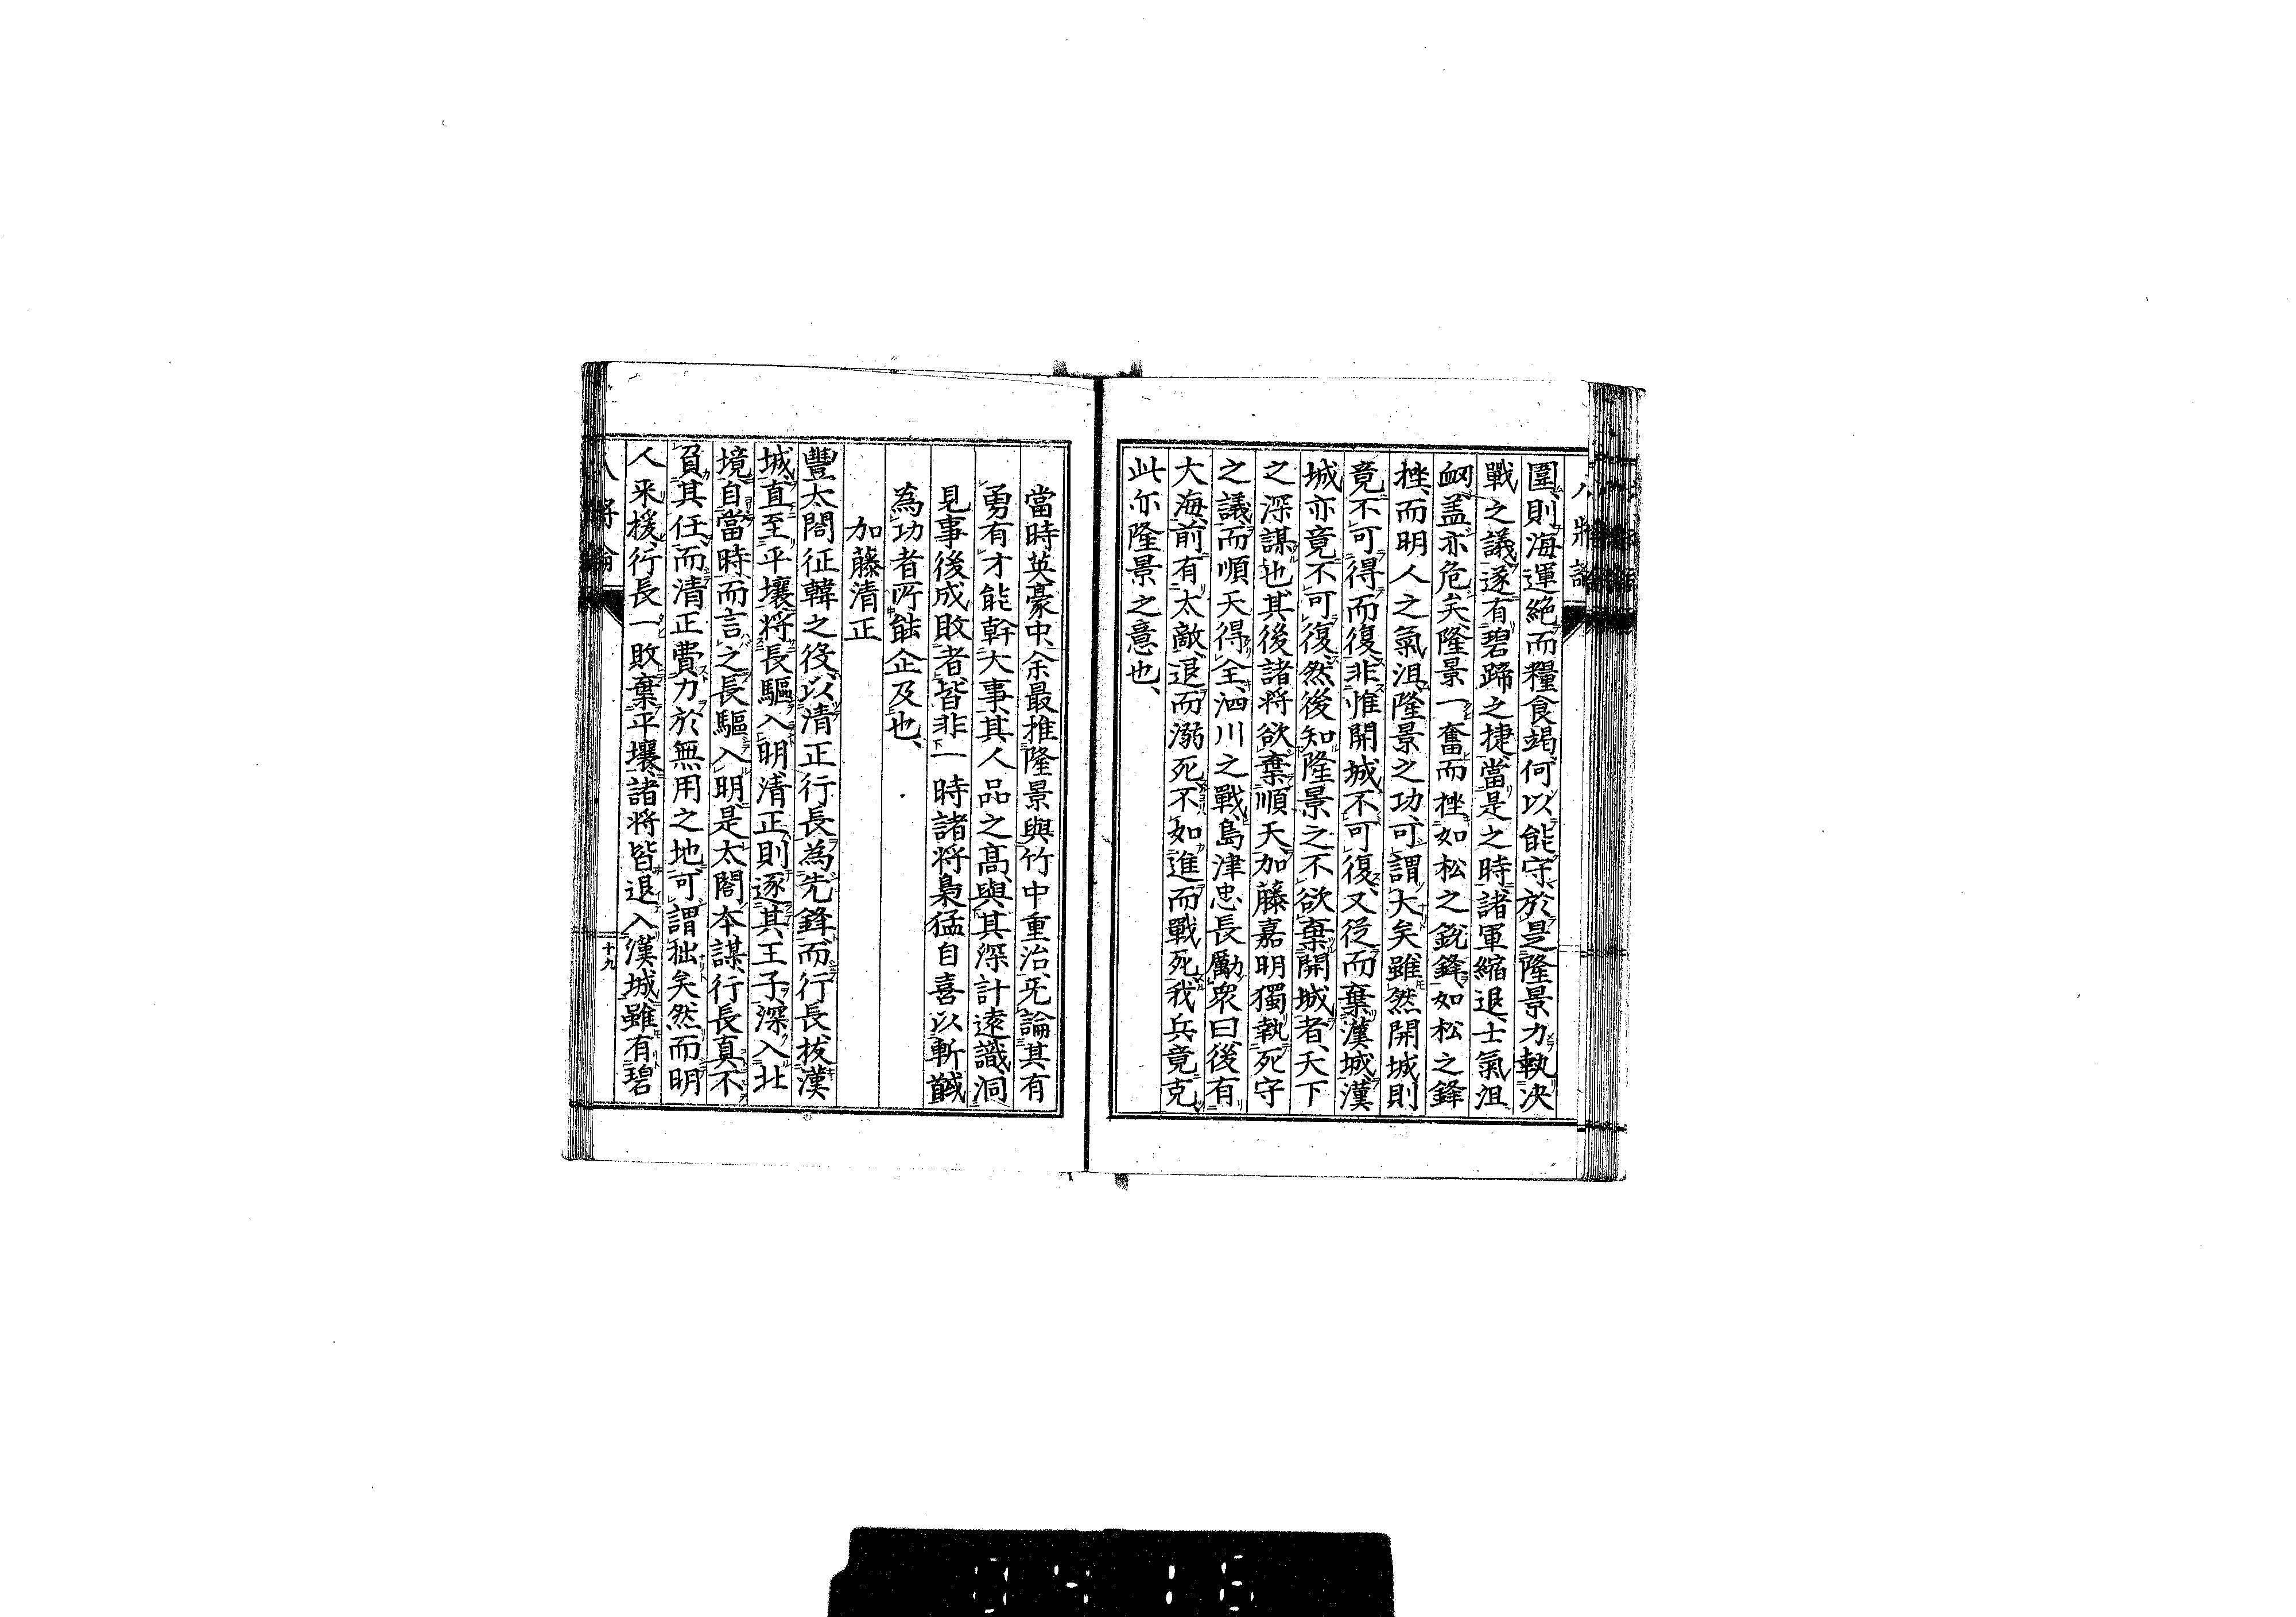 圍、則海運絶而糧食竭、何以能守、於是隆景力執決
戰之議、遂有碧蹄之捷、當是之時、諸軍縮退、士氣沮
衂、盖亦危矣、隆景一奮而挫如松之銳鋒、如松之鋒
挫、而明人之氣沮、隆景之功、可謂大矣、雖然開城則
竟不可得而復、非惟開城不可復、又從而棄漢城、漢
城亦竟不可復、然後知隆景之不欲棄開城者、天下
之深謀也、其後諸將欲棄順天、加藤嘉明獨執死守
之議、而順天得全、泗川之戰、島津忠長勵衆曰、後有
大海、前有太敵、退而溺死、不如進而戰死、我兵竟克、
此亦隆景之意也、
當時英豪中、余最推隆景與竹中重治、旡論其有
勇有才能幹大事、其人品之高、與其深計遠識、洞
見事後成敗者、皆非一時諸將梟猛自喜以斬馘
為功者所能企及也、
加藤清正
豐太閤征韓之役、以清正行長為先鋒、而行長拔漢
城、直至平壤、將長驅入明、清正則逐其王子、深入北
境、自當時而言之、長驅入明、是太閤本謀、行長真不
負其任、而清正費力於無用之地、可謂拙矣、然而明
人来援、行長一敗棄平壤、諸將皆退入漢城、雖有碧
八將論
十九